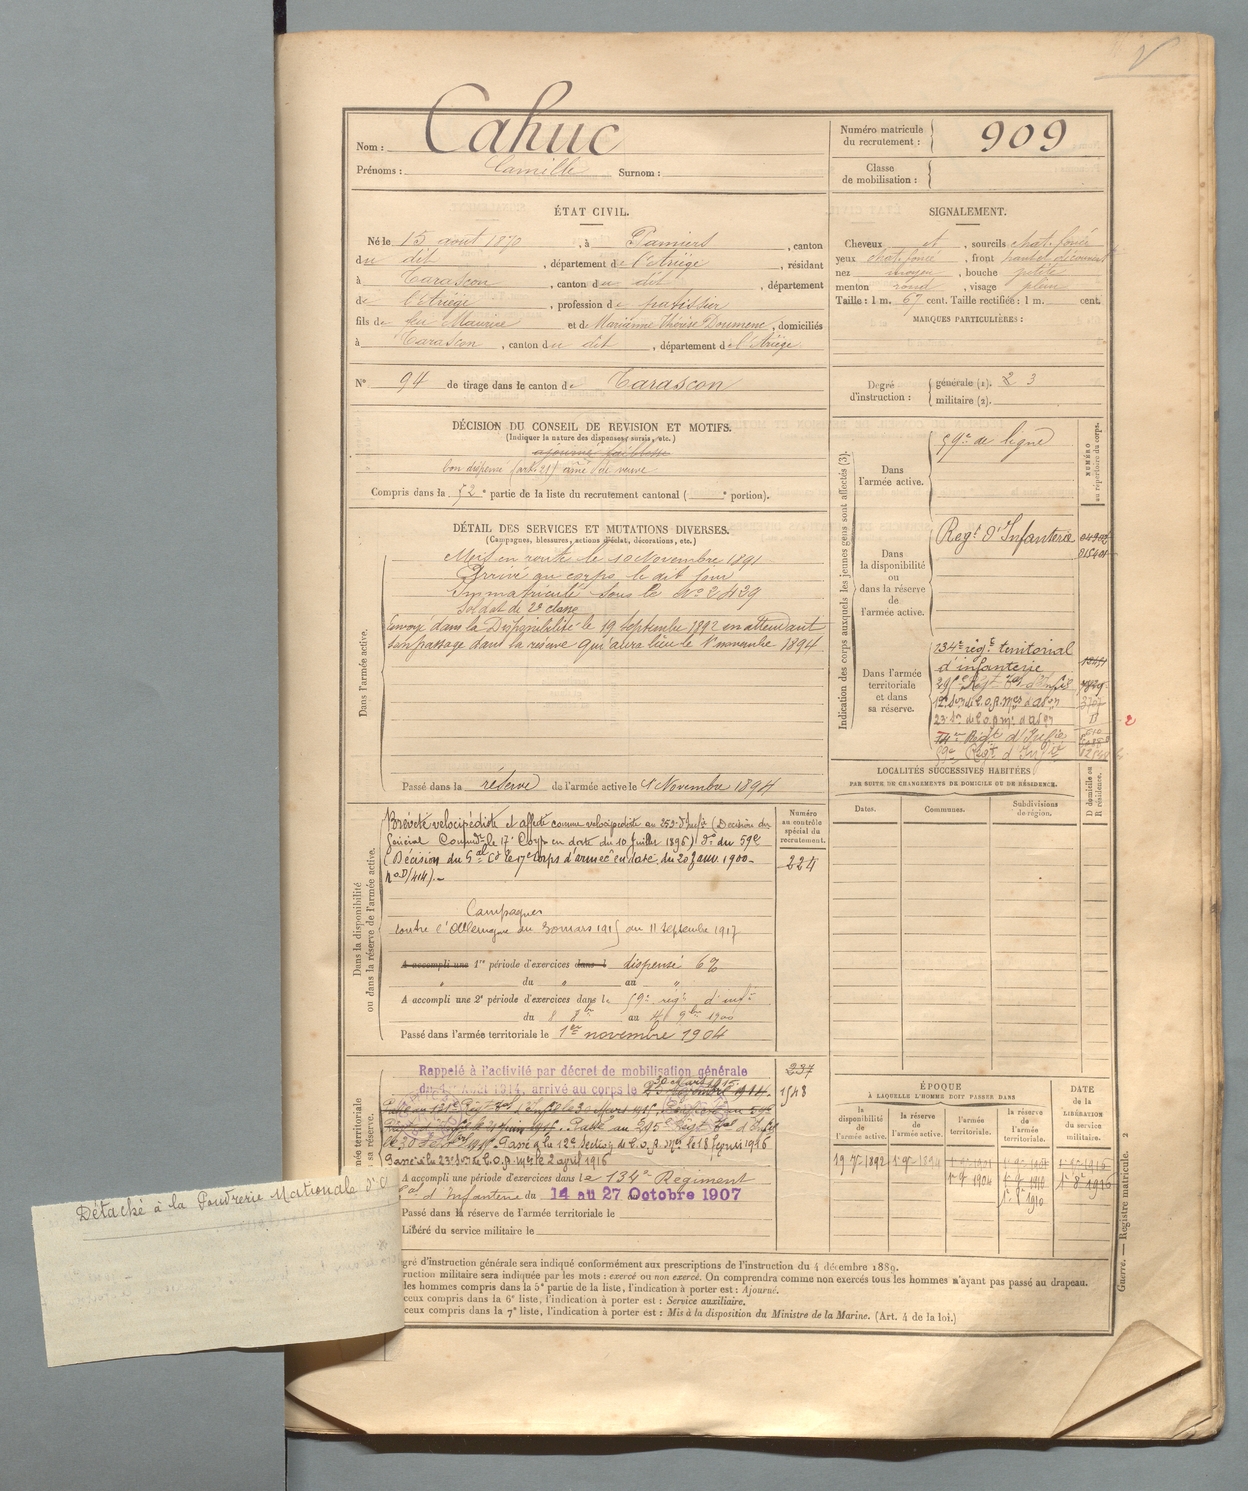 Nom : Cahuc
Prénoms : Camille Surnom :
Numéro matricule du recrutement : 909
Classe de mobilisation :
ÉTAT CIVIL.
Né le 15 aout 1870, à Pamiers, canton
du dit, département de l'Ariège, résidant
à Tarascon, canton du dit, département
de l'Ariège, profession de patissier
fils de feu Maurice et de Marianne Thérèse Doumenc, domiciliés
à Tarascon, canton du dit, département de l'Ariège.
N° 94 de tirage dans le canton de Tarascon
SIGNALEMENT.
Cheveux et, sourcils chat. foncé
yeux chat. foncé, front haut et découvert
nez moyen, bouche petite
menton rond, visage plein
Taille : 1 m. 67 cent. Taille rectifiée : 1 m. cent.
MARQUES PARTICULIÈRES :
Degré d'instruction : générale (1). 2 3
militaire (2).
DÉCISION DU CONSEIL DE REVISION ET MOTIFS.
(Indiquer la nature des dispenses, sursis, etc.)
ajourné faiblesse
bon dispensé (art. 21) aîné de veuve
Compris dans la partie de la liste du recrutement cantonal ( portion).
DÉTAIL DES SERVICES ET MUTATIONS DIVERSES.
(Campagnes, blessures, actions d'éclat, décorations, etc.)
Dans l'armée active.
Mis en route le 10 Novembre 1891
Arrivé au corps le dit jour
Immatriculé sous le N° 2439
Soldat de 2e classe
Envoyé dans la Disponibilité le 19 septembre 1892 en attendant
son passage dans la réserve qui aura lieu le 1er novembre 1894
Passé dans la réserve de l'armée active le 1er Novembre 1894
Indication des corps auxquels les jeunes gens sont affectés (3).
NUMÉRO au répertoire du corps.
Dans l'armée active.
59e de ligne
Dans la disponibilité ou dans la réserve de l'armée active.
Regt d'Infanterie
Dans l'armée territoriale et dans sa réserve.
134e régt territorial
d'infanterie
59e Regt d'Infie
LOCALITÉS SUCCESSIVES HABITÉES
PAR SUITE DE CHANGEMENTS DE DOMICILE OU DE RÉSIDENCE.
Dates. Communes. Subdivisions de région.
D domicile ou R résidence.
Dans la disponibilité ou dans la réserve de l'armée active.
Numéro au contrôle spécial du recrutement.
224
Breveté vélocipédiste et affecté comme vélocipédiste au 259e d'Infie (Décision du
Général Commdt le 17e Corps en date du 10 Juillet 1896) dt du 59e
(Décision du Gal Ct le 17e Corps d'armée en date du 20 Janv. 1900
n° D/414).-
Campagnes
contre l'Allemagne du 30 mars 1915 au 11 septembre 1917
A accompli une 1re période d'exercices dans l dispensé
du " au "
A accompli une 2e période d'exercices dans le 59e régt d'inf
du au 9bre 1900
Passé dans l'armée territoriale le 1er novembre 1904
Rappelé à l'activité par décret de mobilisation générale
du 1er Août 1914, arrivé au corps le
30 mars 1915
237
1548
Passé à la 12e Section de C.O.A. Mres le 18 1916
Passé à la 23e Son de C.O.A. mre le 2 avril 1916
A accompli une période d'exercices dans le 134e Régiment
d'Infanterie du 14 au 27 Octobre 1907
Passé dans la réserve de l'armée territoriale le
Libéré du service militaire le
ÉPOQUE
À LAQUELLE L'HOMME DOIT PASSER DANS
DATE de la LIBÉRATION du service militaire.
la disponibilité de l'armée active.
la réserve de l'armée active.
l'armée territoriale.
la réserve de l'armée territoriale.
19 7re 1892
Détaché à la Poudrerie Nationale
gré d'instruction générale sera indiqué conformément aux prescriptions de l'instruction du 4 décembre 1889.
ruction militaire sera indiquée par les mots : exercé ou non exercé. On comprendra comme non exercés tous les hommes n'ayant pas passé au drapeau.
les hommes compris dans la 5e partie de la liste, l'indication à porter est : Ajourné.
ceux compris dans la 6e liste, l'indication à porter est : Service auxiliaire.
ceux compris dans la 7e liste, l'indication à porter est : Mis à la disposition du Ministre de la Marine. (Art. 4 de la loi.)
Guerre. — Registre matricule. 2